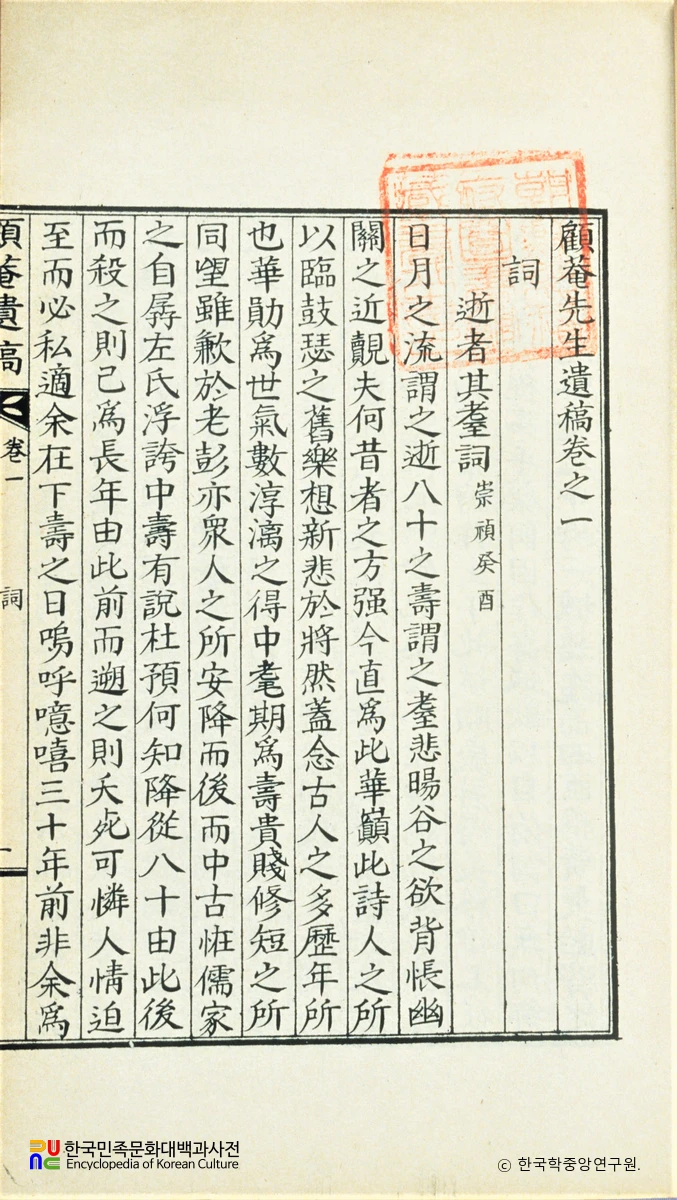 顧菴先生遺稿卷之一
詞
逝者其耋詞 崇禎癸酉
日月之流謂之逝八十之壽謂之耋悲暘谷之欲背悵幽
關之近覿夫何昔者之方强今直爲此華巔此詩人之所
以臨鼓瑟之舊樂想新悲於將然蓋念古人之多歷年所
也華勛爲世氣數淳漓之得中耄期爲壽貴賤修短之所
同朢雖歉於老彭亦衆人之所安降而後而中古恠儒家
之自孱左氏浮誇中壽有說杜預何知降從八十由此後
而殺之則已爲長年由此前而遡之則夭兂可憐人情迫
至而必私適余在下壽之日嗚呼噫嘻三十年前非余爲
顧菴遺稿 卷一 詞 一
한국민족문화대백과사전
Encyclopedia of Korean Culture
© 한국학중앙연구원.